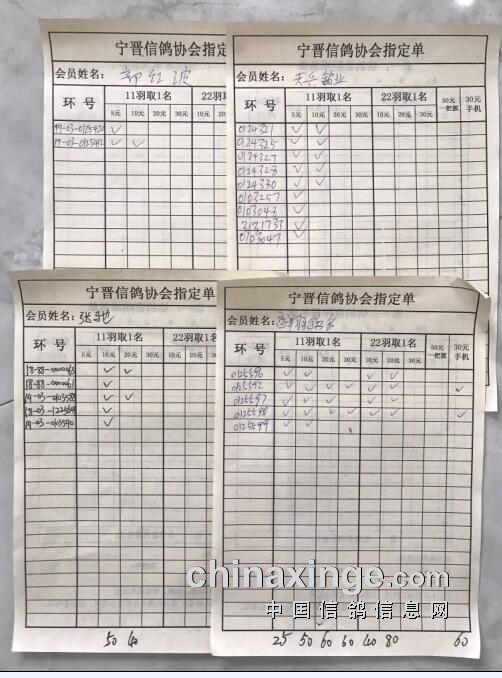 宁晋信鸽协会指定单
会员姓名: 郭红波
环 号 11羽取1名 22羽取1名
5元 10元 20元 30元 5元 10元 20元
19-03-0125420
19-03-0125412
宁晋信鸽协会指定单
会员姓名: 天兵鸽业
环 号 11羽取1名 22羽取1名 50元一把抓 30元手机
5元 10元 20元 30元 5元 10元 20元 30元
0124321
0124325
0124327
0124328
0124330
0103257
0103043
2121733
0103047
宁晋信鸽协会指定单
会员姓名: 张驰
环 号 11羽取1名 22羽取1名
5元 10元 20元 30元 5元 10元 20元
18-88-0000063
18-88-0000061
19-03-0103588
18-03-1223569
19-03-0103590
50 40
宁晋信鸽协会指定单
会员姓名:
环 号 11羽取1名 22羽取1名 50元一把抓 30元手机
5元 10元 20元 30元 5元 10元 20元 30元
0125596
0125592
0125597
0125598
0125599
25 50 60 60 40 80 60
chinaxinge.com
中国信鸽信息网